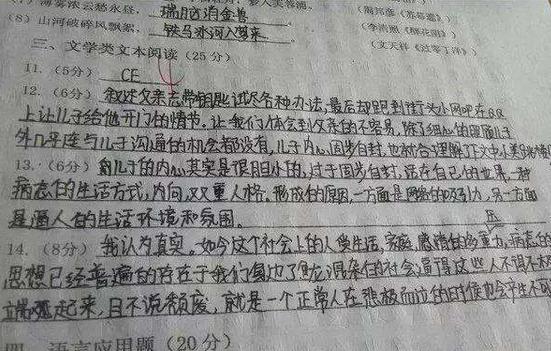 (7) 薄雾浓云愁永昼，瑞脑消金兽。（李清照《醉花阴》）
(8) 山河破碎风飘絮，铁马冰河入梦来。（文天祥《过零丁洋》）
三、文学类文本阅读（25分）
11.（5分） CE
12.（6分） 叙述父亲忘带钥匙试尽各种办法，最后却跑到街头小网吧在QQ
上让儿子给他开门的情节。让我们体会到父亲的不容易，除了 的里面儿子
外几乎连与儿子沟通的机会都没有，儿子内心固步自封，也就合理解了下文中
13.（6分） 儿子的内心其实是很胆小的，过于固步自封，活在自己的世界，一种
病态的生活方式，内向，双重人格，形成的原因，一方面是网络的吸引力，另一方面
是逼人的生活环境和氛围。
14.（8分） 我认为真实。如今这个社会上的人受生活，家庭，感情的多重压力，病态的
思想已经普遍的存在于我们身边了，鱼龙混杂的社会，逼得这些人不得不
起来，且不说颓废，就是一个正常人在 的时候也会产生不
四、语言应用题（20分）